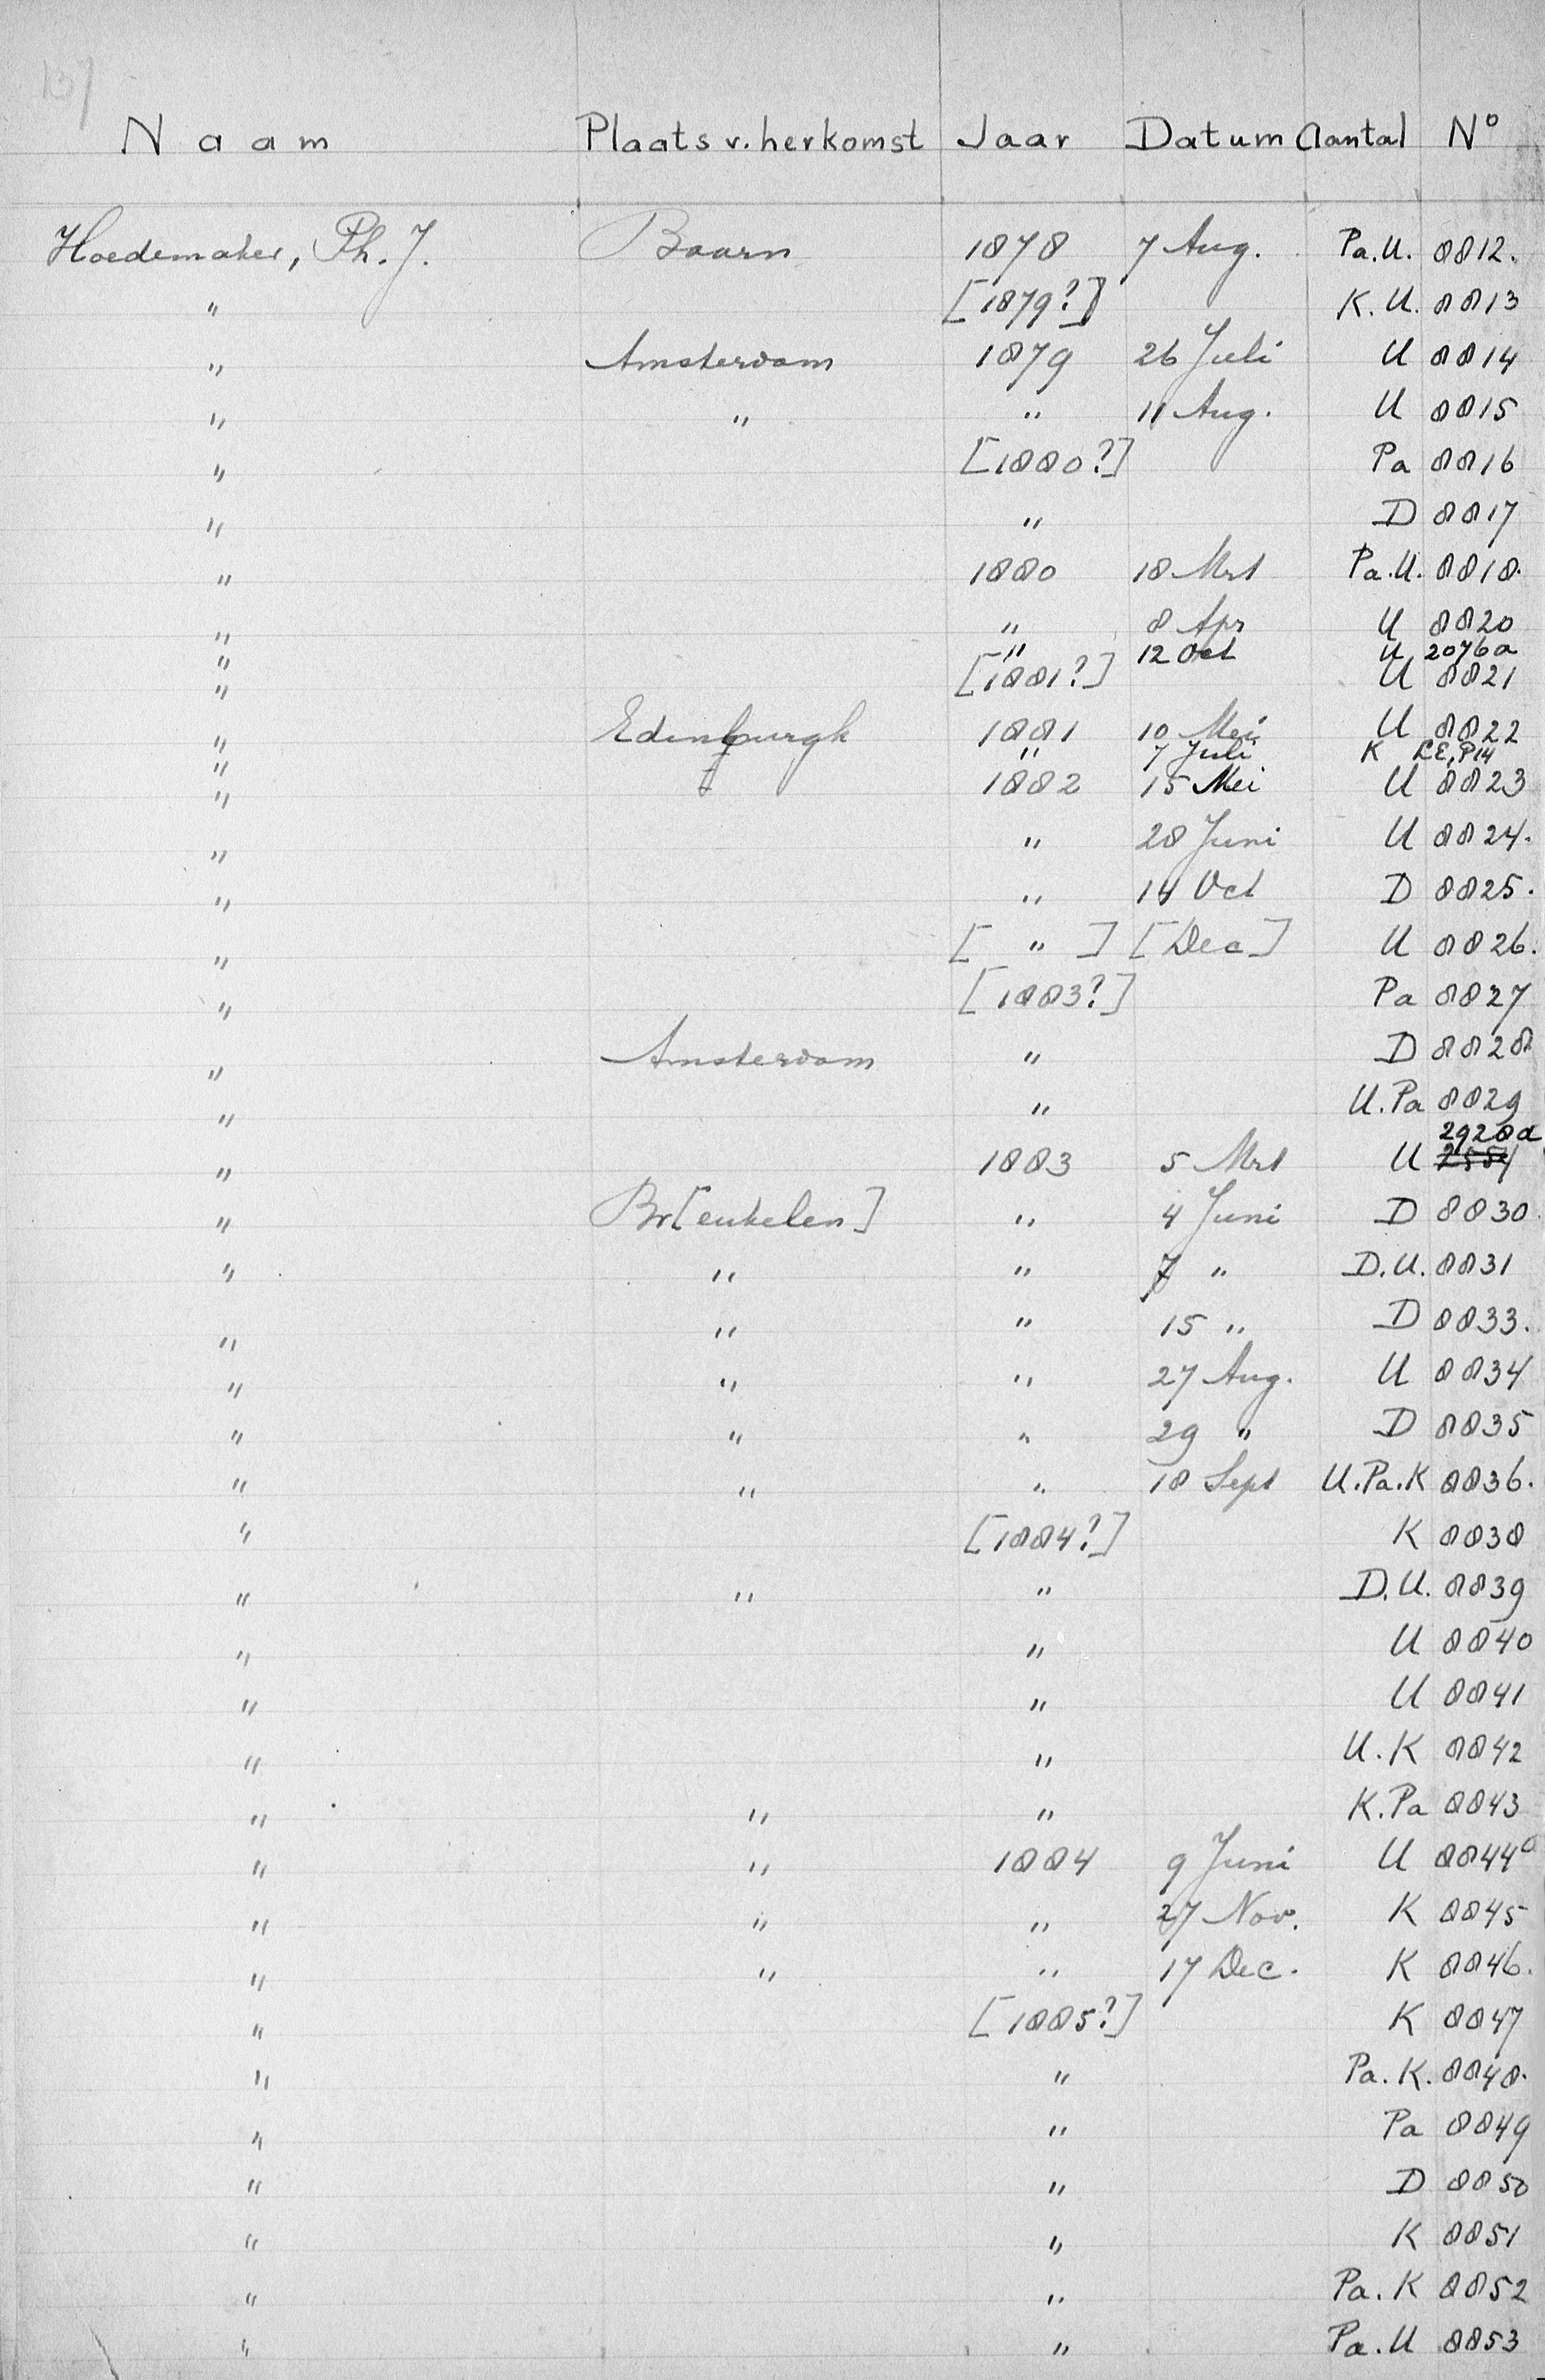 137
Naam Plaats v. herkomst Jaar Datum Aantal No
Hoedemaker, Ph. J. Baarn 1878 7 Aug. Pa. U. 8812.
" [1879?] K. U. 8813
" Amsterdam 1879 26 Juli U 8814
" " " 11 Aug. U 8815
" [1880?] Pa 8816
" " D 8817
" 1880 18 Mrt Pa. U. 8818.
" " 8 Apr U 8820
" " 12 Oct U 2076a
" [1881?] U 8821
" Edinburgh 1881 10 Mei U 8822
" " 7 Juli K LE, P14
" 1882 15 Mei U 8823
" " 28 Juni U 8824.
" " 14 Oct D 8825.
" [ " ] [Dec] U 8826.
" [1883?] Pa 8827
" Amsterdam " D 8828
" " U. Pa 8829
2928a
" 1883 5 Mrt U 2554
" Br[eukelen] " 4 Juni D 8830.
" " " 7 " D. U. 8831
" " " 15 " D 8833.
" " " 27 Aug. U 8834
" " " 29 " D 8835
" " " 18 Sept U. Pa. K 8836.
" [1884?] K 8838
" " " D. U. 8839
" " U 8840
" " U 8841
" " U. K 8842
" " " K. Pa 8843
" " 1884 9 Juni U 8844a
" " " 27 Nov. K 8845
" " " 17 Dec. K 8846.
" [1885?] K 8847
" " Pa. K. 8848.
" " Pa 8849
" " D 8850
" " K 8851
" " Pa. K 8852
" " Pa. U 8853